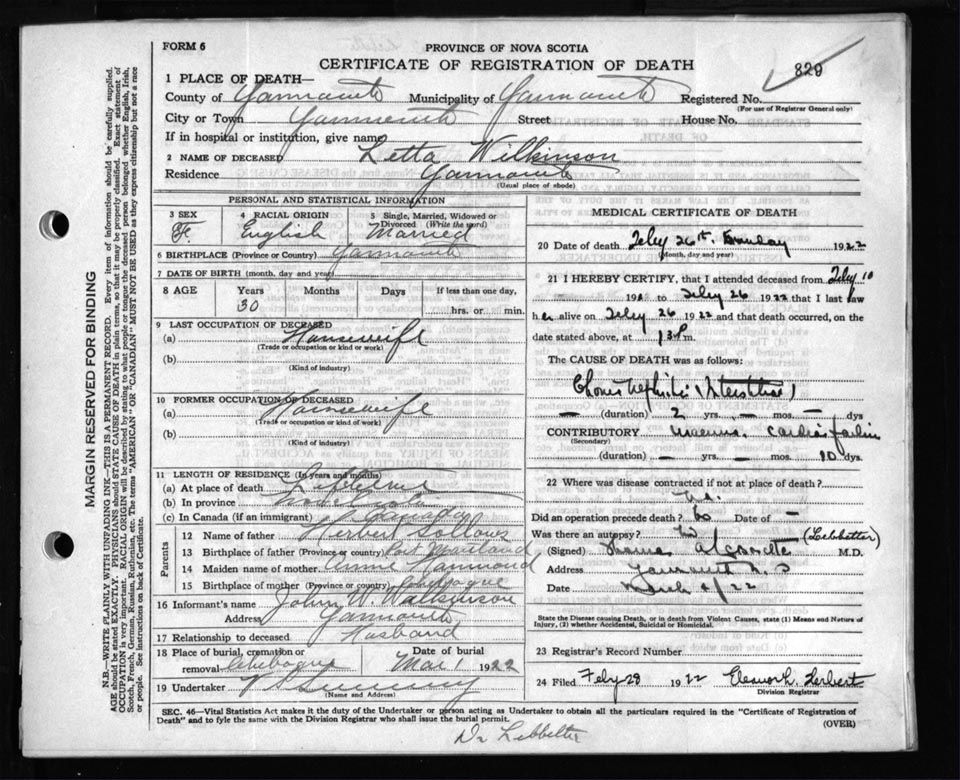 FORM 6
PROVINCE OF NOVA SCOTIA
CERTIFICATE OF REGISTRATION OF DEATH
829
1 PLACE OF DEATH—
County of Yarmouth Municipality of Yarmouth Registered No.
(For use of Registrar General only)
City or Town Yarmouth Street House No.
If in hospital or institution, give name
2 NAME OF DECEASED Letta Wilkinson
Residence Yarmouth
(Usual place of abode)
PERSONAL AND STATISTICAL INFORMATION
3 SEX F. 4 RACIAL ORIGIN English 5 Single, Married, Widowed or Divorced (Write the word) Married
6 BIRTHPLACE (Province or Country) Yarmouth
7 DATE OF BIRTH (month, day and year)
8 AGE Years Months Days If less than one day,
30 hrs. or min.
9 LAST OCCUPATION OF DECEASED
(a) Housewife
(Trade or occupation or kind of work)
(b)
(Kind of industry)
10 FORMER OCCUPATION OF DECEASED
(a) Housewife
(Trade or occupation or kind of work)
(b)
(Kind of industry)
11 LENGTH OF RESIDENCE (In years and months)
(a) At place of death Lifetime
(b) In province
(c) In Canada (if an immigrant) Canada
Parents
12 Name of father Herbert Sollows
13 Birthplace of father (Province or country) Port Maitland
14 Maiden name of mother Annie Hammond
15 Birthplace of mother (Province or country) Chebogue
16 Informant's name John W. Wilkinson
Address Yarmouth
17 Relationship to deceased Husband
18 Place of burial, cremation or removal Chebogue Date of burial Mar 1 1922
19 Undertaker V S Sweeny
(Name and Address)
MEDICAL CERTIFICATE OF DEATH
20 Date of death Feby 26th. Sunday 1922
(Month, day and year)
21 I HEREBY CERTIFY, that I attended deceased from Feby 10
192 to Feby 26 1922 that I last saw
her alive on Feby 26 1922 and that death occurred, on the
date stated above, at m.
The CAUSE OF DEATH was as follows:
Chronic Nephritis (Interstitial)
— (duration) 2 yrs. — mos. — dys
CONTRIBUTORY Uraemia. Cardiac failure
(Secondary)
(duration) — yrs. — mos. 10 dys.
22 Where was disease contracted if not at place of death?
Did an operation precede death? No Date of —
Was there an autopsy? No (Lebbetter)
(Signed) Thomas M.D.
Address Yarmouth N.S
Date /22
State the Disease causing Death, or in death from Violent Causes, state (1) Means and Nature of Injury, (2) whether Accidental, Suicidal or Homicidal.
23 Registrar's Record Number
24 Filed Feby 28 1922
Division Registrar
SEC. 46—Vital Statistics Act makes it the duty of the Undertaker or person acting as Undertaker to obtain all the particulars required in the "Certificate of Registration of
Death" and to fyle the same with the Division Registrar who shall issue the burial permit. (OVER)
Dr Lebbetter
MARGIN RESERVED FOR BINDING
N.B.—WRITE PLAINLY WITH UNFADING INK—THIS IS A PERMANENT RECORD. Every item of information should be carefully supplied.
AGE should be stated EXACTLY. PHYSICIANS should STATE CAUSE OF DEATH in plain terms, so that it may be properly classified. Exact statement of
OCCUPATION is very important. RACIAL ORIGIN will be described by stating to what people or tongue the deceased person belonged whether English, Irish,
Scotch, French, German, Russian, Ruthenian, etc. The terms "AMERICAN" OR "CANADIAN" MUST NOT BE USED as they express citizenship but not a race
or people. See instructions on back of Certificate.